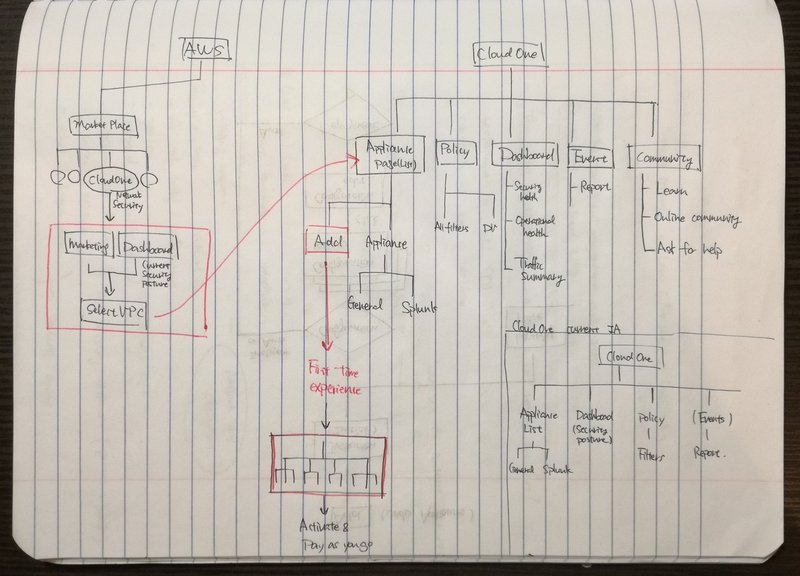 AWS
Market Place
Cloud One
Network
Security
Marketing
Dashboard
Current
Security
posture
Select VPC
Cloud One
Appliance
page(List)
Policy
Dashboard
Event
Community
Add
Appliance
General
Splunk
All filters
DV
Security
health
Operational
health
Traffic
Summary
Report
Learn
Online community
Ask for help
First-time
experience
Activate &
Pay as you go
Cloud One current IA
Cloud One
Appliance
List
General
Splunk
Dashboad
(Security
posture)
Policy
Filters
(Events)
Report.